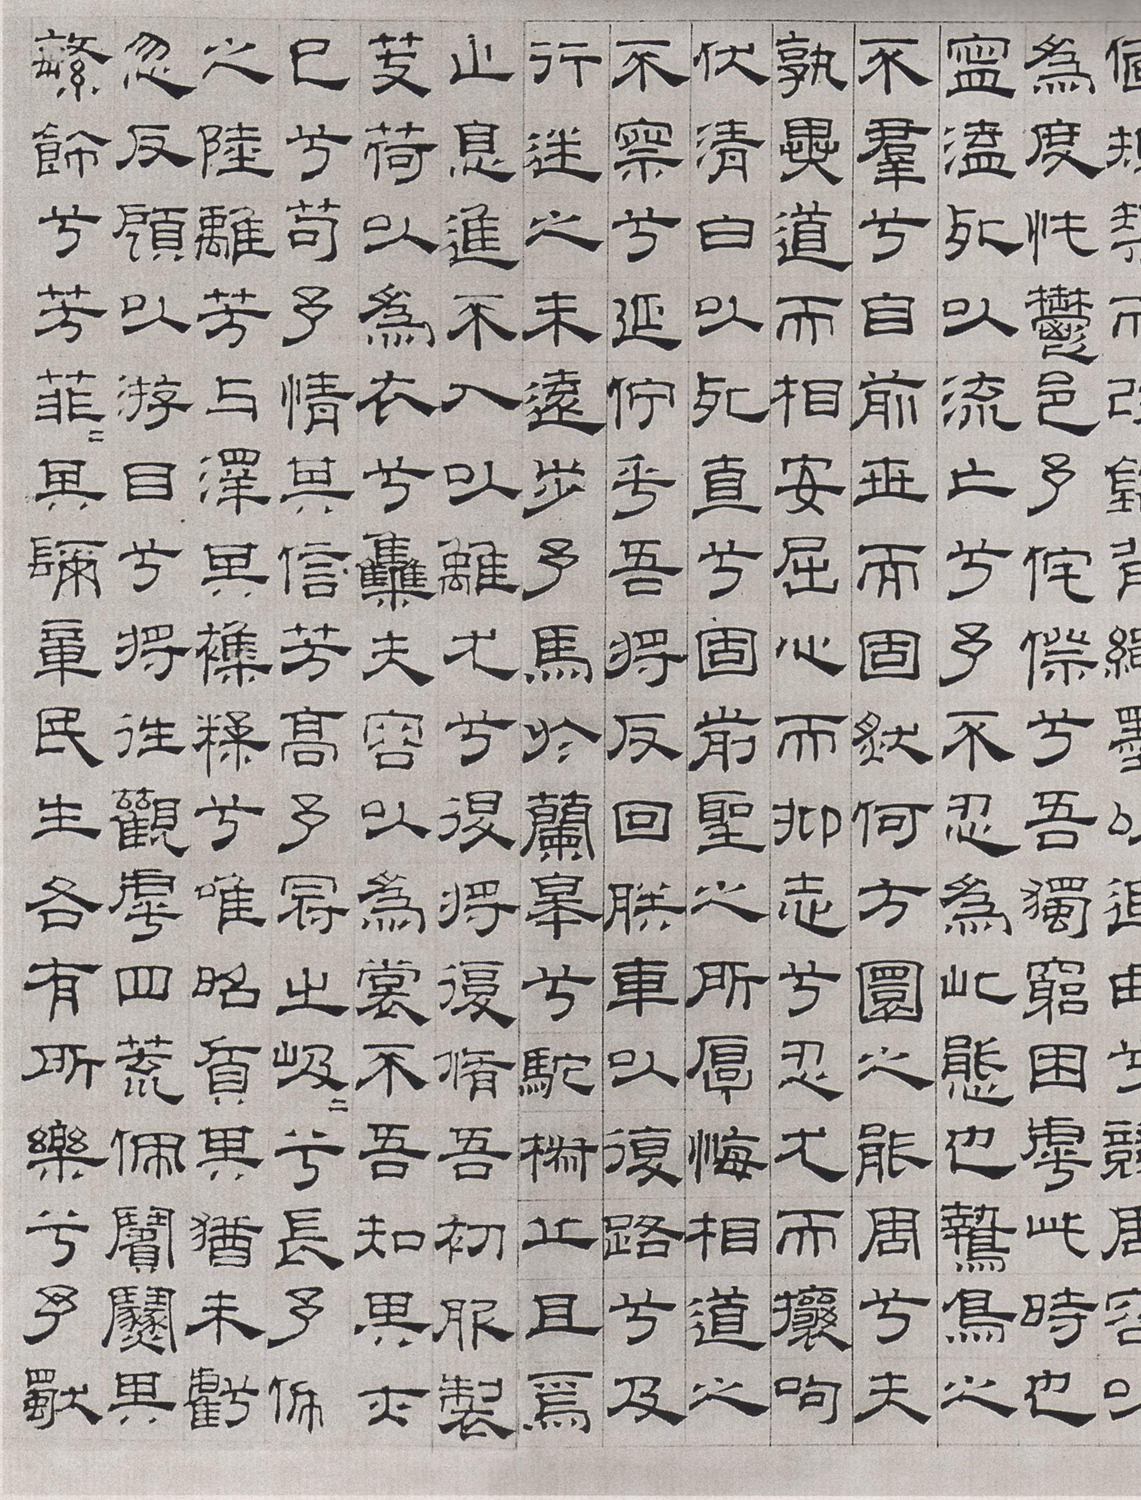 偭規榘而改錯背繩墨以追曲兮競周容以
為度忳鬱邑予侘傺兮吾獨窮困虖此時也
寧溘死以流亡兮予不忍為此態也鷙鳥之
不羣兮自前世而固然何方圜之能周兮夫
孰異道而相安屈心而抑志兮忍尤而攘呴
伏清白以死直兮固前聖之所厚悔相道之
不察兮延佇乎吾將反回朕車以復路兮及
行迷之未遠步予馬於蘭皋兮馳椒丘且焉
止息進不入以離尤兮退將復脩吾初服製
芰荷以為衣兮雧夫容以為裳不吾知其亦
已兮苟予情其信芳高予冠之岌〻兮長予佩
之陸離芳与澤其雜糅兮唯昭質其猶未虧
忽反顧以游目兮將往觀虖四荒佩繽紛其
繁飾兮芳菲〻其彌章民生各有所樂兮予獨